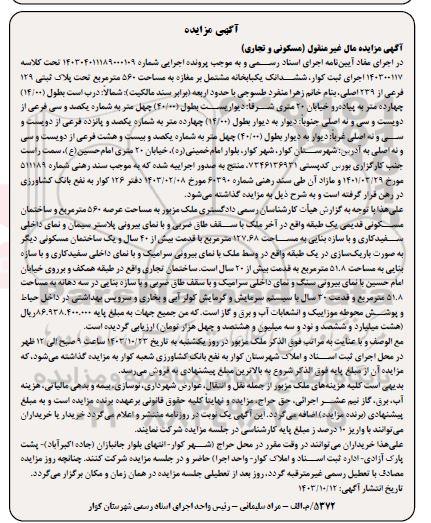 آگهی مزایده
آگهی مزایده مال غیر منقول (مسکونی و تجاری)
در اجرای مفاد آیین‌نامه اجرای اسناد رسمی و به موجب پرونده اجرایی شماره ۱۴۰۳۰۴۰۱۱۱۸۹۰۰۰۱۰۹ تحت کلاسه
۱۴۰۳۰۰۱۱۷ اجرای ثبت کوار، ششدانگ یکبابخانه مشتمل بر مغازه به مساحت ۵۶۰ مترمربع تحت پلاک ثبتی ۱۲۹
فرعی از ۲۳۹ اصلی، بنام خانم زهرا منفرد طسوجی با حدود اربعه (برابر سند مالکیت): شمالاً: درب است بطول (۱۴/۰۰)
چهارده متر به پیاده‌رو خیابان ۲۰ متری شرقاً: دیواریست بطول (۴۰/۰۰) چهل متر به شماره یکصد و سی فرعی از
دویست و سی و نه اصلی جنوباً: دیوار به دیوار بطول (۱۴/۰۰) چهارده متر به شماره یکصد و پانزده فرعی از دویست و
سی و نه اصلی غرباً: دیوار به دیوار بطول (۴۰/۰۰) چهل متر به شماره یکصد و بیست و هشت فرعی از دویست و سی
و نه اصلی به آدرس: شهرستان کوار، شهر کوار، بلوار امام خمینی(ره)، خیابان ۲۰ متری امام حسین(ع)، سمت راست
جنب کارگزاری بورس کدپستی ۷۳۴۶۱۳۶۹۳۱، منتج به صدور اجراییه شده که به موجب سند رهنی شماره ۵۱۱۱۸۹
مورخ ۱۴۰۱/۰۳/۲۹ و مازاد آن طی سند رهنی شماره ۶۰۳۹۰ مورخ ۱۴۰۳/۰۲/۰۸ دفتر ۱۲۶ کوار به نفع بانک کشاورزی
در رهن قرار گرفته است و به شرح ذیل به مزایده گذاشته می‌شود.
علی‌هذا با توجه به گزارش هیأت کارشناسان رسمی دادگستری ملک مزبور به مساحت عرصه ۵۶۰ مترمربع و ساختمان
مسکونی قدیمی یک طبقه واقع در آخر ملک با سقف طاق ضربی و با نمای بیرونی پلاستر سیمان و نمای داخلی
سفیدکاری و با سازه بنایی به مساحت ۱۲۷.۶۸ مترمربع با قدمت بیش از ۴۰ سال و یک ساختمان مسکونی دیگر
به صورت باریک‌سازی در یک طبقه واقع در وسط ملک با نمای بیرونی سرامیک و با نمای داخلی سفیدکاری و با سازه
بنایی به مساحت ۵۱.۸ مترمربع به قدمت بیش از ۲۰ سال است. ساختمان تجاری واقع در طبقه همکف و برروی خیابان
امام حسین با نمای بیرونی سنگ و نمای داخلی سرامیک و با سقف طاق ضربی و با سازه بنایی در سه دهانه به مساحت
۵۱.۸ مترمربع و قدمت ۲۰ سال با سیستم سرمایش و گرمایش کولر آبی و بخاری و سرویس بهداشتی در داخل حیاط
و پوشش محوطه موزاییک و انشعابات آب و برق و گاز است، که من جمیع جهات به مبلغ پایه ۸۶.۹۳۸.۴۰۰.۰۰۰ ریال
(هشت میلیارد و ششصد و نود و سه میلیون و هشتصد و چهل هزار تومان) ارزیابی گردیده است.
مع الوصف و با عنایت به مراتب فوق الذکر ملک مزبور در روز یکشنبه به تاریخ ۱۴۰۳/۱۰/۲۳ از ساعت ۹ صبح الی ۱۲ ظهر
در محل اجرای ثبت اسناد و املاک شهرستان کوار به نفع بانک کشاورزی شعبه کوار به مزایده گذاشته می‌شود، که
مزایده آن از مبلغ پایه فوق الذکر شروع به بالاترین مبلغ پیشنهادی به فروش می‌رسد.
بدیهی است کلیه هزینه‌های ملک مزبور از جمله نقل و انتقال، عوارض شهرداری، نوسازی، بیمه و بدهی مالیاتی، هزینه
آب، برق، گاز نیم عشر اجرائی، حق حراج، مزایده و نهایتاً کلیه حقوق قانونی برعهده برنده مزایده است و به مبلغ
پیشنهادی (برنده مزایده) اضافه می‌گردد. این آگهی یک نوبت در روزنامه منتشر و اعلام می‌گردد خریدار یا خریداران
می‌توانند با واریز ۱۰ درصد از مبلغ پایه کارشناسی در جلسه مزایده شرکت نمایند.
علی‌هذا خریداران می‌توانند در وقت مقرر در محل حراج (شهر کوار- انتهای بلوار جانبازان (جاده اکبرآباد)- پشت
پارک آزادی- اداره ثبت اسناد و املاک کوار- واحد اجرا) حاضر و در جلسه مزایده شرکت کنند. چنانچه روز مزایده
مصادف با تعطیل رسمی غیرمترقبه گردد، روز بعد از تعطیلی جلسه مزایده در همان زمان و مکان برگزار می‌گردد.
تاریخ انتشار آگهی: ۱۴۰۳/۱۰/۱۲
۵۳۷۲/م.الف - مراد سلیمانی - رئیس واحد اجرای اسناد رسمی شهرستان کوار